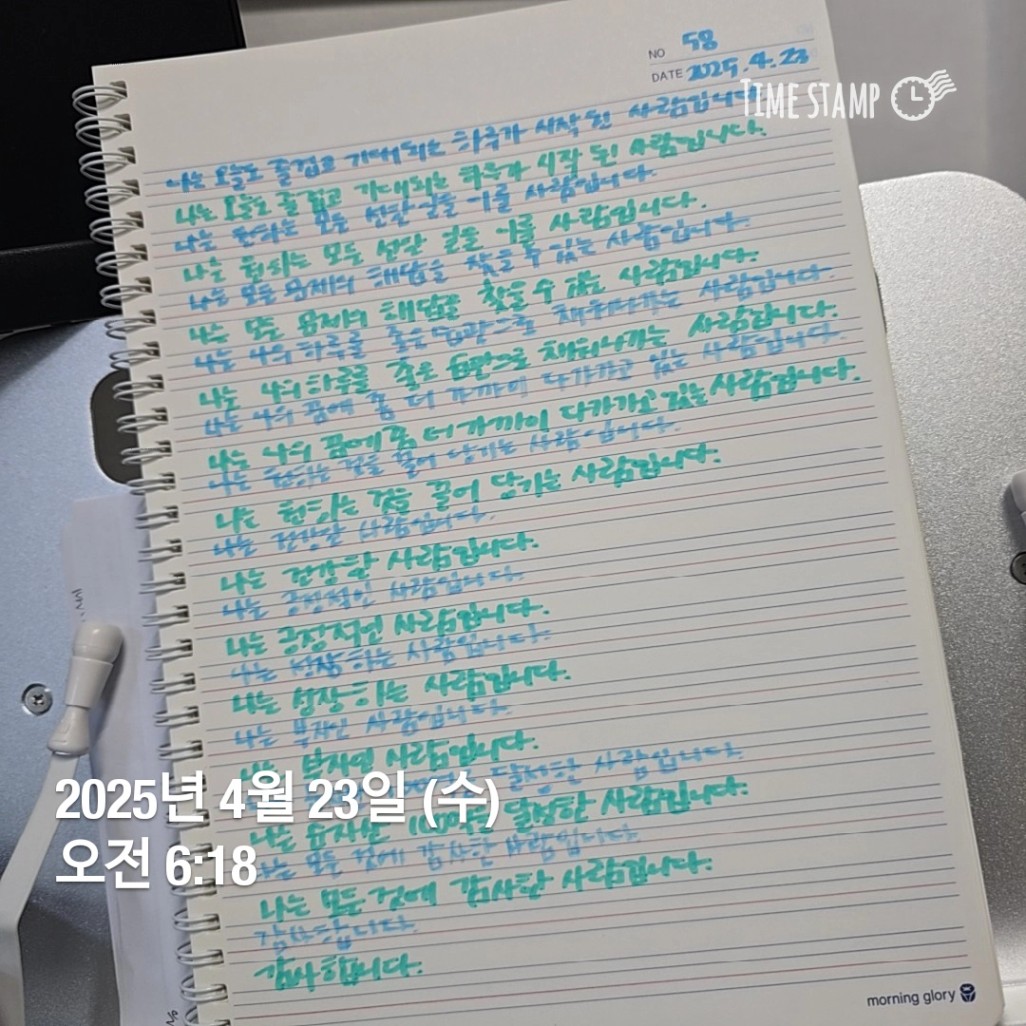 NO 58
DATE 2025.4.23
TIME STAMP
나는 오늘도 즐겁고 기대되는 하루가 시작 된 사람입니다.
나는 오늘도 즐겁고 기대되는 하루가 시작 된 사람입니다.
나는 원하는 모든 선한 일을 이룰 사람입니다.
나는 원하는 모든 선한 일을 이룰 사람입니다.
나는 모든 문제의 해답을 찾을 수 있는 사람입니다.
나는 모든 문제의 해답을 찾을 수 있는 사람입니다.
나는 나의 하루를 좋은 습관으로 채워나가는 사람입니다.
나는 나의 하루를 좋은 습관으로 채워나가는 사람입니다.
나는 나의 꿈에 좀 더 가까이 다가가고 있는 사람입니다.
나는 나의 꿈에 좀 더 가까이 다가가고 있는 사람입니다.
나는 원하는 것을 끌어 당기는 사람입니다.
나는 원하는 것을 끌어 당기는 사람입니다.
나는 건강한 사람입니다.
나는 건강한 사람입니다.
나는 긍정적인 사람입니다.
나는 긍정적인 사람입니다.
나는 성장하는 사람입니다.
나는 성장하는 사람입니다.
나는 부자인 사람입니다.
나는 부자인 사람입니다.
달성한 사람입니다.
나는 순자산 100억을 달성한 사람입니다.
나는 모든 것에 감사한 사람입니다.
나는 모든 것에 감사한 사람입니다.
감사합니다.
감사합니다.
2025년 4월 23일 (수)
오전 6:18
morning glory